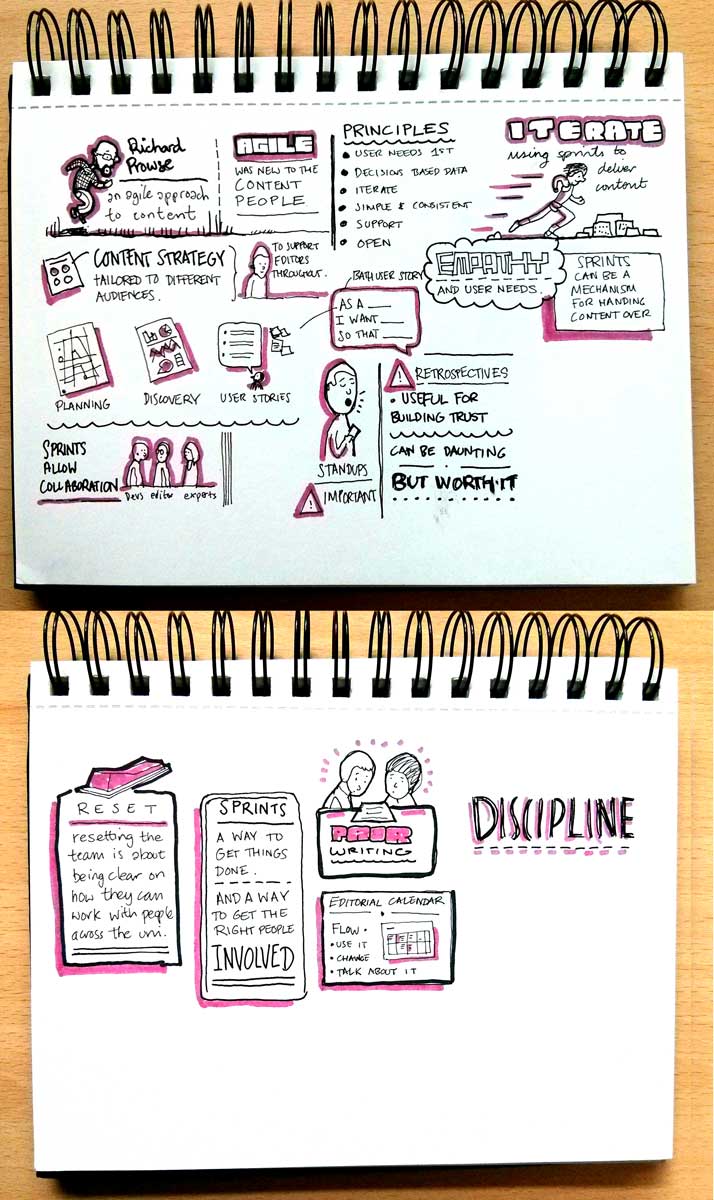 Richard
Prowse
an agile approach
to content
AGILE
WAS NEW TO THE
CONTENT
PEOPLE
PRINCIPLES
USER NEEDS 1ST
DECISIONS BASED DATA
ITERATE
SIMPLE & CONSISTENT
SUPPORT
OPEN
ITERATE
using sprints to
deliver
content
CONTENT STRATEGY
TAILORED TO DIFFERENT
AUDIENCES.
TO SUPPORT
EDITORS
THROUGHOUT.
EMPATHY
AND USER NEEDS.
SPRINTS
CAN BE A
MECHANISM
FOR HANDING
CONTENT OVER
BATH USER STORY
AS A ___
I WANT ___
SO THAT ___
PLANNING
DISCOVERY
USER STORIES
STANDUPS
! IMPORTANT
! RETROSPECTIVES
• USEFUL FOR
BUILDING TRUST
CAN BE DAUNTING
BUT WORTH IT
SPRINTS
ALLOW
COLLABORATION
Devs editor experts
RESET
resetting the
team is about
being clear on
how they can
work with people
across the uni.
SPRINTS
A WAY TO
GET THINGS
DONE.
AND A WAY
TO GET THE
RIGHT PEOPLE
INVOLVED
PAIR
WRITING
EDITORIAL CALENDAR
FLOW •
• USE IT
• CHANGE
• TALK ABOUT IT
DISCIPLINE